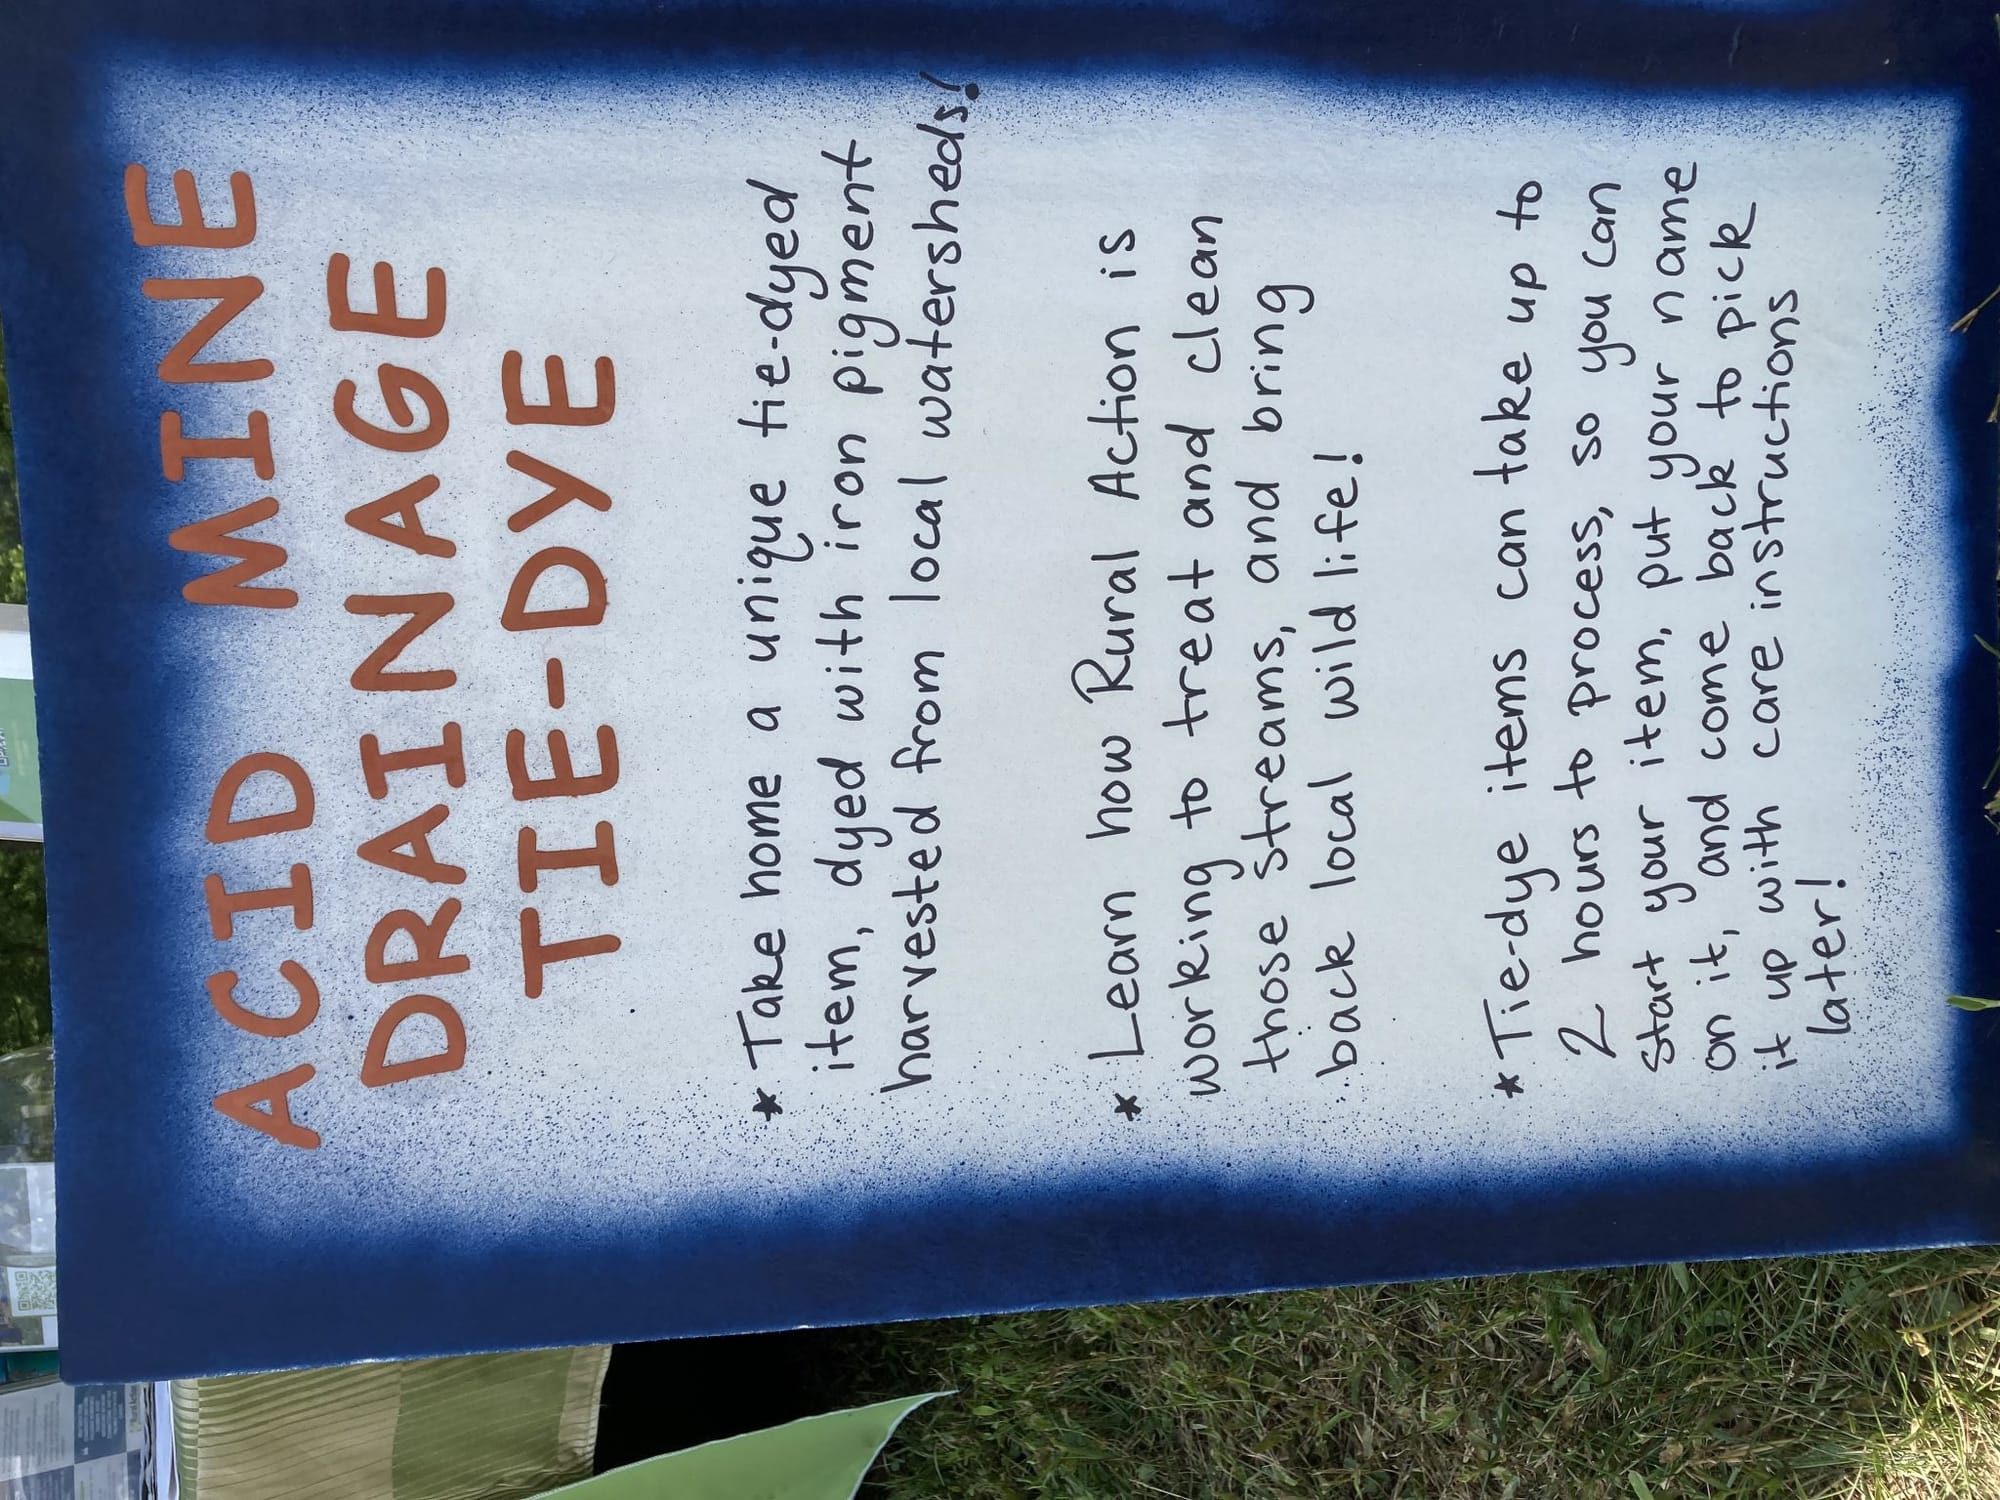 ACID MINE
DRAINAGE
TIE-DYE
* Take home a unique tie-dyed
item, dyed with iron pigment
harvested from local watersheds!
* Learn how Rural Action is
working to treat and clean
those streams, and bring
back local wildlife!
* Tie-dye items can take up to
2 hours to process, so you can
start your item, put your name
on it, and come back to pick
it up with care instructions
later!